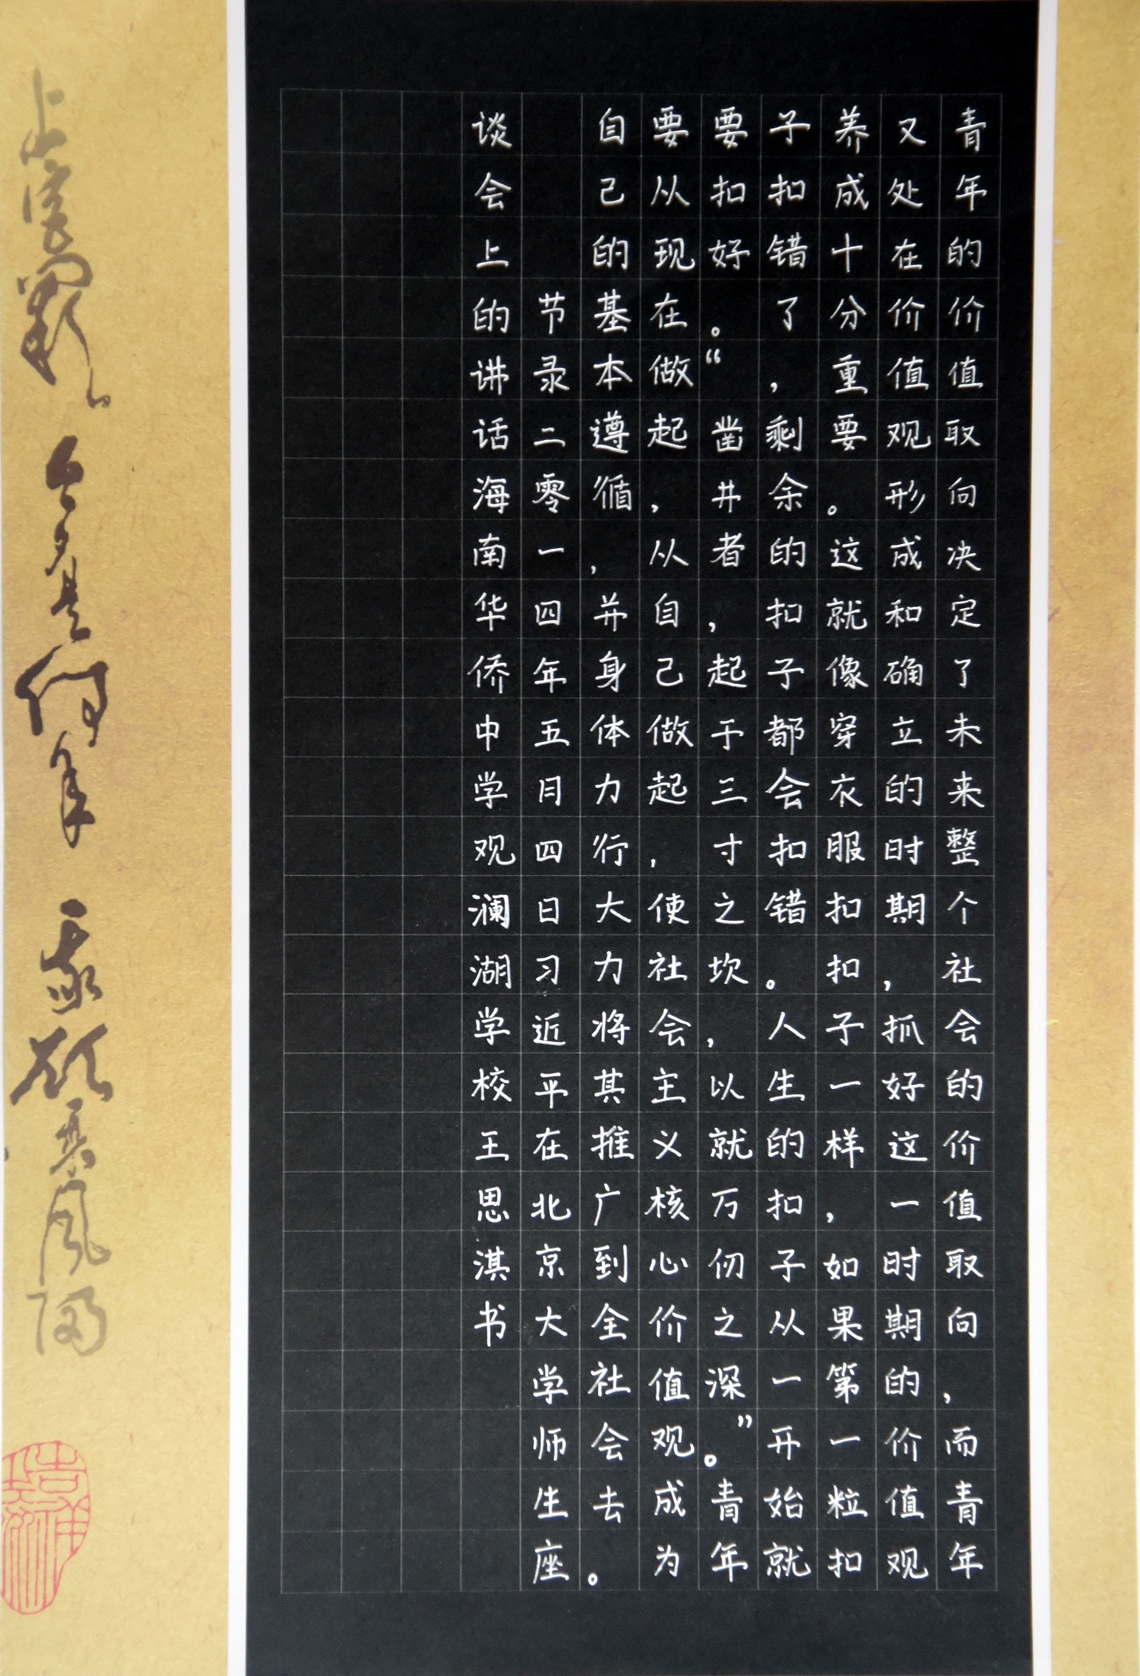 青年的价值取向决定了未来整个社会的价值取向，而青年
又处在价值观形成和确立的时期，抓好这一时期的价值观
养成十分重要。这就像穿衣服扣扣子一样，如果第一粒扣
子扣错了，剩余的扣子都会扣错。人生的扣子从一开始就
要扣好。“凿井者，起于三寸之坎，以就万仞之深。”青年
要从现在做起，从自己做起，使社会主义核心价值观成为
自己的基本遵循，并身体力行大力将其推广到全社会去。
节录二零一四年五月四日习近平在北京大学师生座
谈会上的讲话海南华侨中学观澜湖学校王思淇书
上宫阙
今夕是何年
我欲乘风归